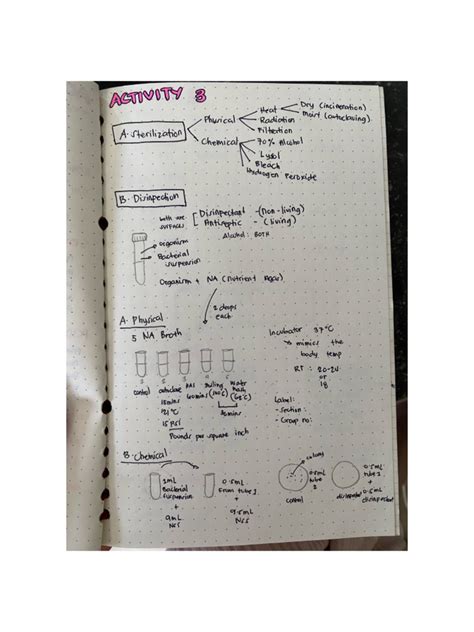 ACTIVITY 3
A. Sterilization
Physical
Heat
Dry (incineration)
Moist (autoclaving)
Radiation
Filtration
Chemical
70% Alcohol
Lysol
Bleach
Hydrogen Peroxide
B. Disinfection
both are surfaces
Disinfectant - (non-living)
Antiseptic - (living)
Alcohol: BOTH
Organism
Bacterial
suspension
Organism + NA (Nutrient Agar)
2 drops
each
A. Physical
5 NA Broth
Incubator 37°C
mimics the
body temp
RT: 20-24
or
18
1 2 3 4 5
control
autoclave
15mins
121°C
15 PSI
Pounds per square inch
boiling
(100°C)
water
bath
Label:
- section:
- Group no:
B. Chemical
1mL
Bacterial
suspension
+
9mL
NSS
0.5mL
from tube 1
+
9.5mL
NSS
colony
0.5mL
tube
2
control
0.5mL
tube 2
+
0.5mL
disinfectant